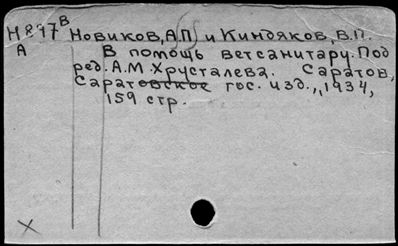 Н897В Новиков, А.П. и Киндяков, В.П.
А В помощь ветсанитару. Под
ред. А.М. Хрусталева. Саратов,
Саратовское гос. изд., 1934,
159 стр.
X